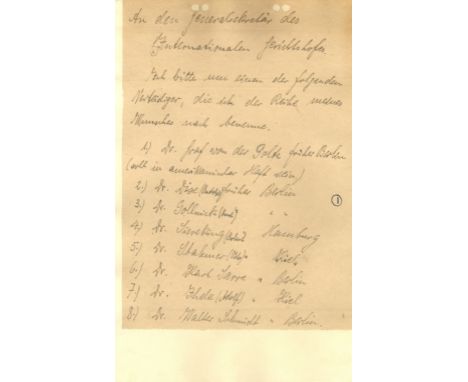 An den Generalsekretär des
Internationalen Gerichtshofes.
Ich bitte um einen der folgenden
Verteidiger, die ich der Reihe meines
Wunsches nach benenne.
1.) Dr. Graf von der Goltz früher Berlin
(soll in amerikanischer Haft sein)
2.) Dr. Dix früher Berlin
3.) Dr. Gollnick " "
4.) Dr. Sieveking Hamburg
5.) Dr. Stahmer Kiel
6.) Dr. Karl Sarre " Berlin
7.) Dr. Thele (Adolf) " Kiel
8.) Dr. Walter Schmidt " Berlin.
1